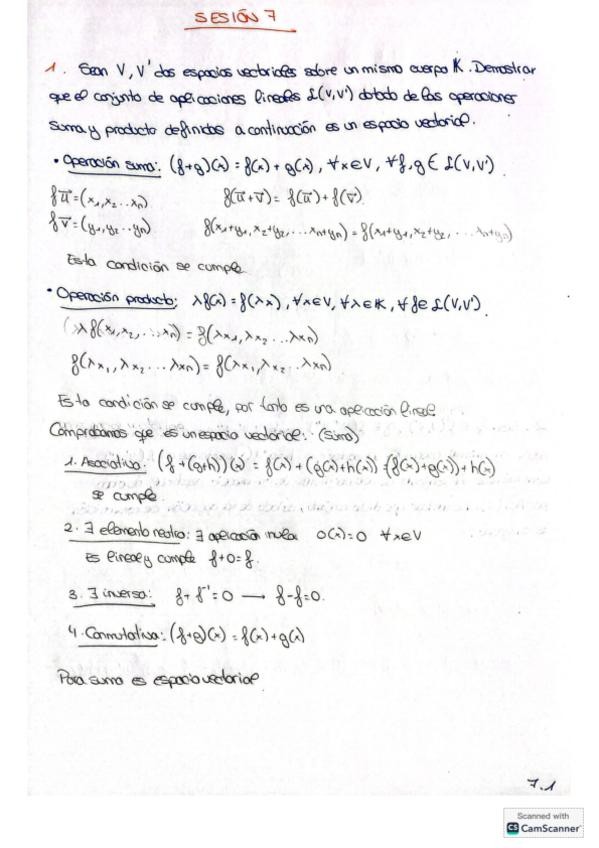 SESIÓN 7
1. Sean V, V' dos espacios vectoriales sobre un mismo cuerpo K. Demostrar
que el conjunto de aplicaciones lineales L(V,V') dotado de las operaciones
suma y producto definidos a continuación es un espacio vectorial.
• Operación suma: (f+g)(x) = f(x) + g(x), ∀x∈V, ∀f,g ∈ L(V,V')
f u⃗ = (x₁, x₂ ... xₙ) f(u⃗+v⃗) = f(u⃗) + f(v⃗)
f v⃗ = (y₁, y₂ ... yₙ) f(x₁+y₁, x₂+y₂, ... xₙ+yₙ) = f(x₁+y₁, x₂+y₂, ... xₙ+yₙ)
Esta condición se cumple
• Operación producto: λf(x) = f(λx), ∀x∈V, ∀λ∈K, ∀f∈ L(V,V')
(λf(x₁, x₂, ... xₙ) = f(λx₁, λx₂ ... λxₙ)
f(λx₁, λx₂ ... λxₙ) = f(λx₁, λx₂ ... λxₙ)
Esta condición se cumple, por tanto es una aplicación lineal
Comprobamos que es un espacio vectorial: (suma)
1. Asociativa: (f + (g+h))(x) = f(x) + (g(x)+h(x)) = (f(x)+g(x)) + h(x)
se cumple.
2. ∃ elemento neutro: ∃ aplicación nula O(x)=0 ∀x∈V
Es lineal y cumple f+0=f.
3. ∃ inversa: f + f⁻¹ = 0 → f-f=0.
4. Conmutativa: (f+g)(x) = f(x) + g(x)
Para suma es espacio vectorial
7.1
Scanned with
CS CamScanner